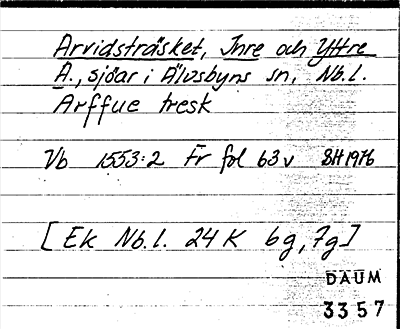 Arvidsträsket, Inre och Yttre
A., sjöar i Älvsbyns sn, Nb.l.
Arffue tresk
Vb 1553:2 Fr fol 63v SH 1976
[Ek Nb.l. 24K 6g, 7g]
DAUM
3357